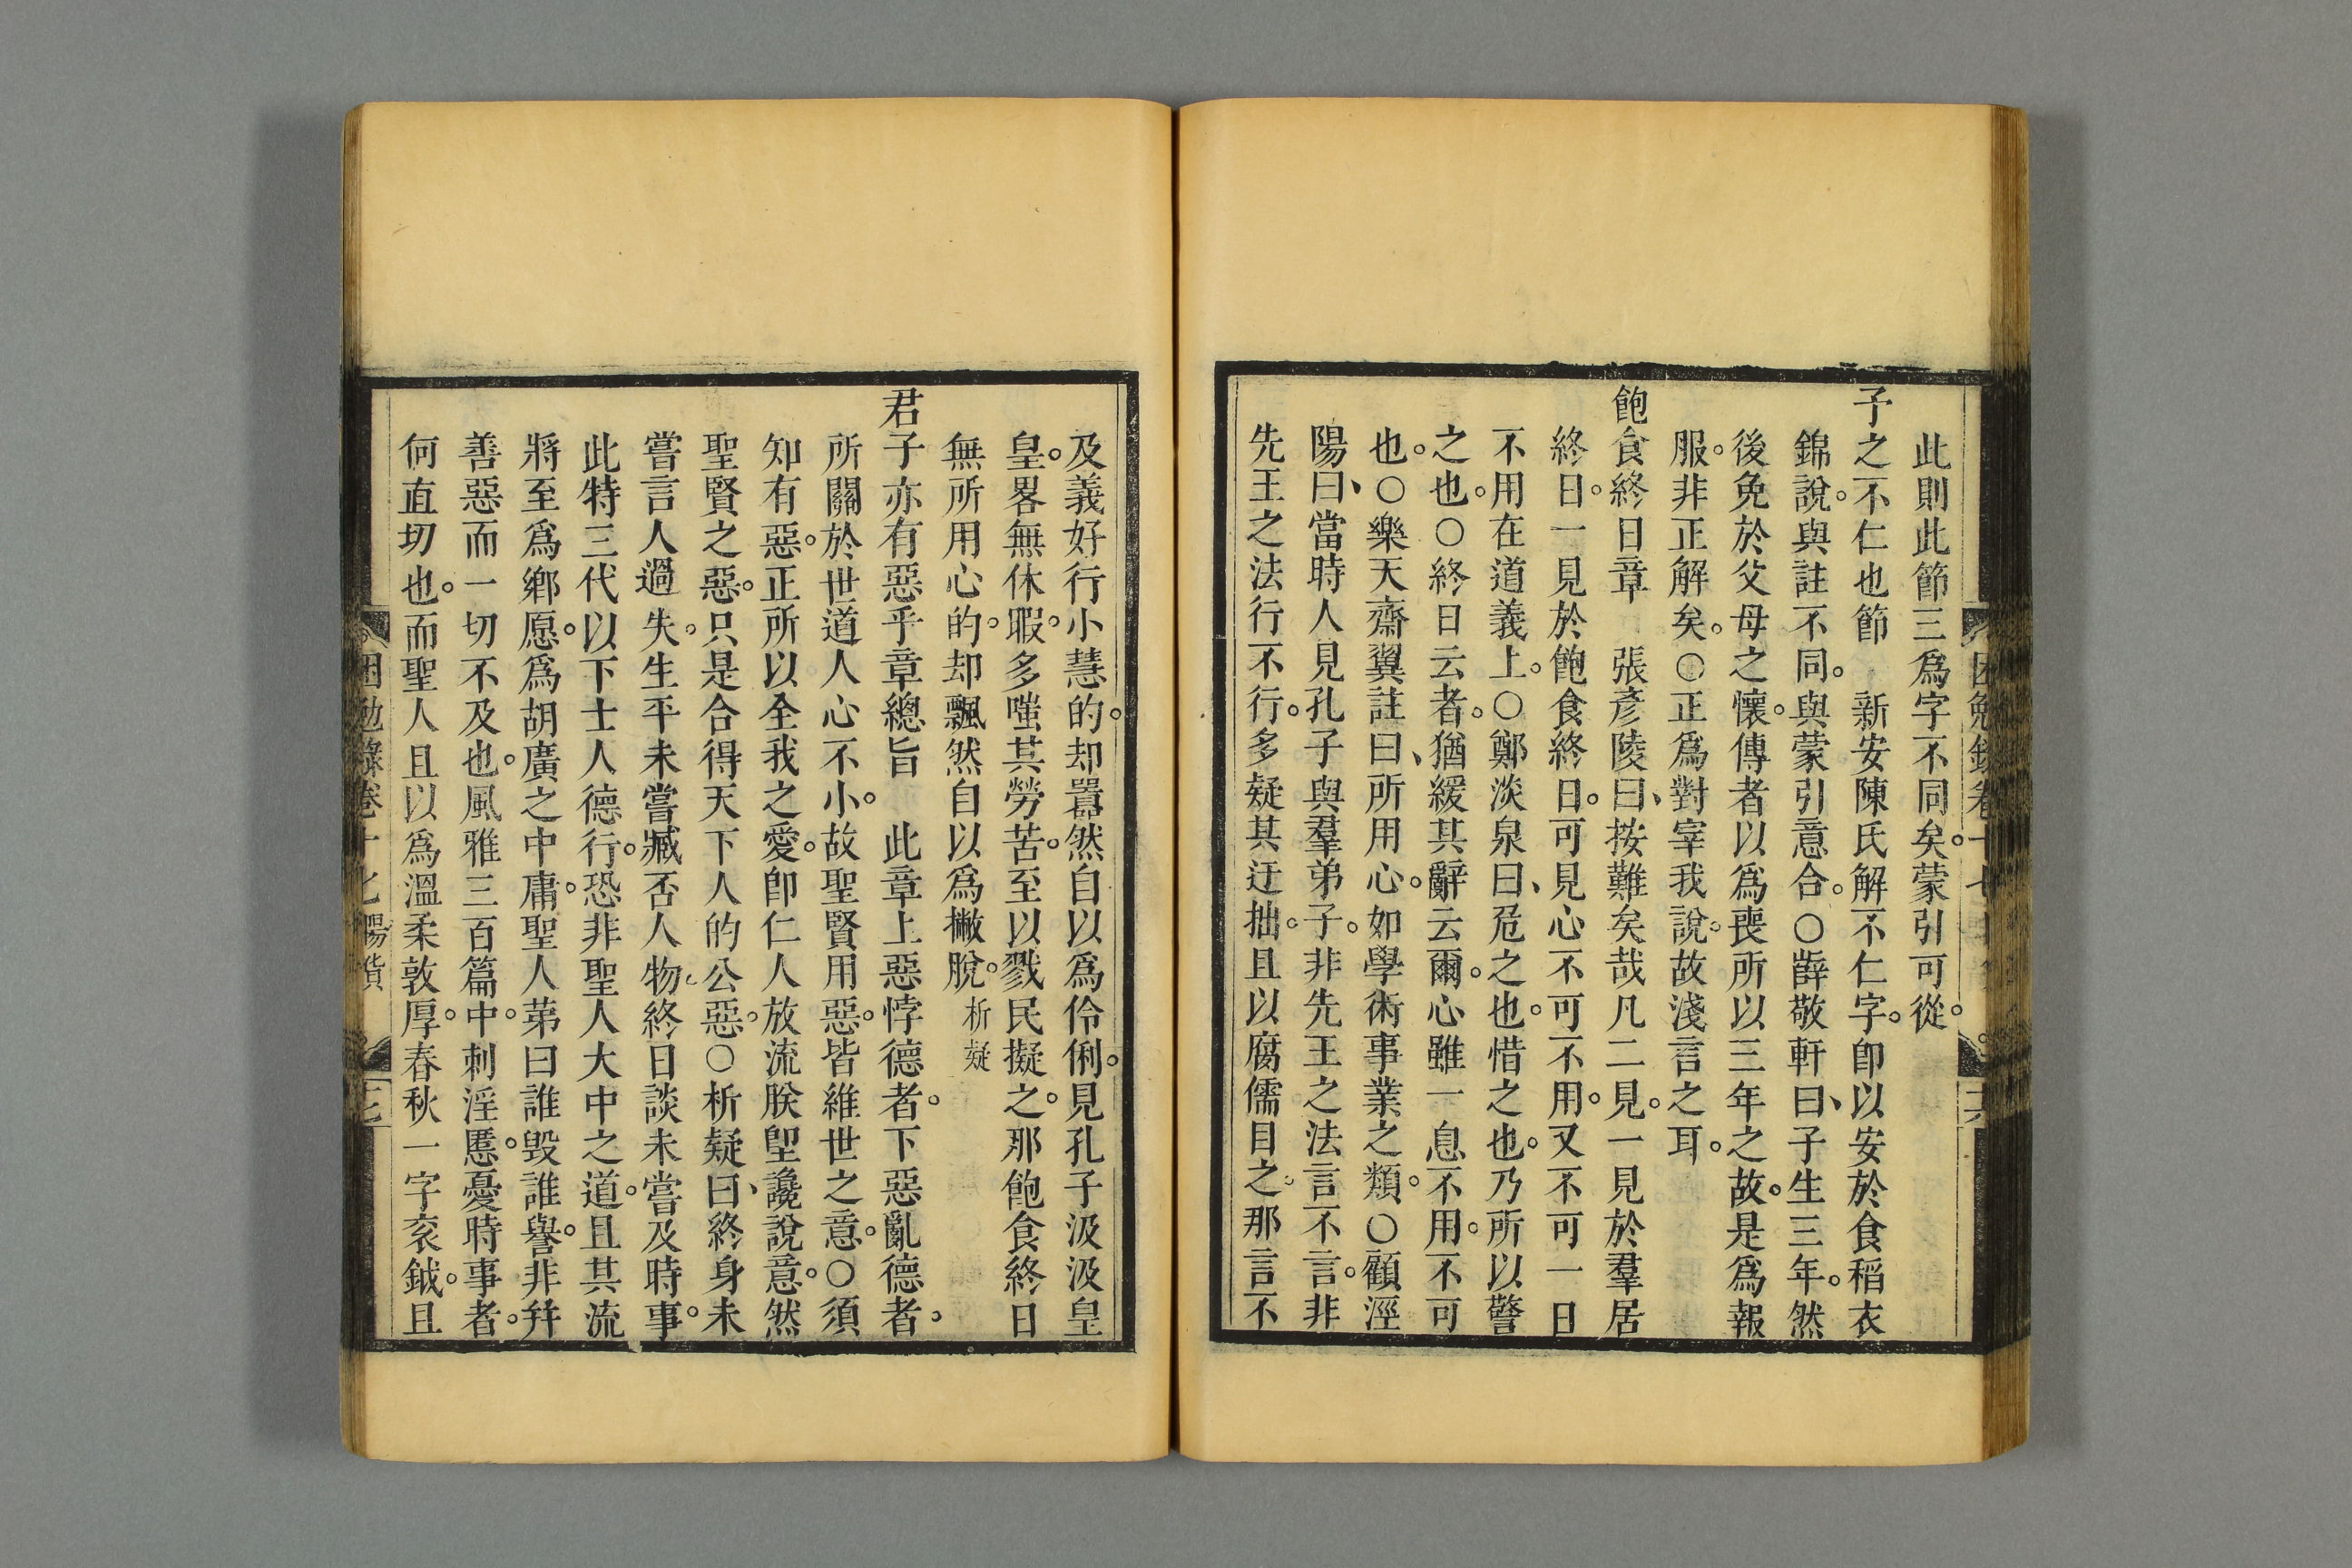 此則此節三爲字不同矣。蒙引可從。
予之不仁也節　新安陳氏解不仁字。卽以安於食稻衣
錦說。與註不同。與蒙引意合。○薛敬軒曰、子生三年。然
後免於父母之懷。傳者以爲喪所以三年之故。是爲報
服。非正解矣。○正爲對宰我說。故淺言之耳。
飽食終日章　張彥陵曰、按難矣哉凡二見。一見於羣居
終日。一見於飽食終日。可見心不可不用。又不可一日
不用在道義上。○鄭淡泉曰、危之也。惜之也。乃所以警
之也。○終日云者。猶緩其辭云爾。心雖一息不用。不可
也。○樂天齋翼註曰、所用心。如學術事業之類。○顧涇
陽曰、當時人見孔子與羣弟子。非先王之法言不言。非
先王之法行不行。多疑其迂拙。且以腐儒目之。那言不
及義好行小慧的。却囂然自以爲伶俐。見孔子汲汲皇
皇。畧無休暇。多嗤其勞苦。至以戮民擬之。那飽食終日
無所用心的。却飄然自以爲撇脫。析疑
君子亦有惡乎章總旨　此章上惡悖德者。下惡亂德者。
所關於世道人心不小。故聖賢用惡。皆維世之意。○須
知有惡。正所以全我之愛。卽仁人放流朕堲讒說意。然
聖賢之惡。只是合得天下人的公惡。○析疑曰、終身未
嘗言人過失。生平未嘗臧否人物。終日談未嘗及時事。
此特三代以下士人德行。恐非聖人大中之道。且其流
將至爲鄉愿。爲胡廣之中庸。聖人苐曰誰毀誰譽。非幷
善惡而一切不及也。風雅三百篇中。刺淫慝憂時事者。
何直切也。而聖人且以爲溫柔敦厚。春秋一字衮鉞。且
困勉錄卷十七陽貨